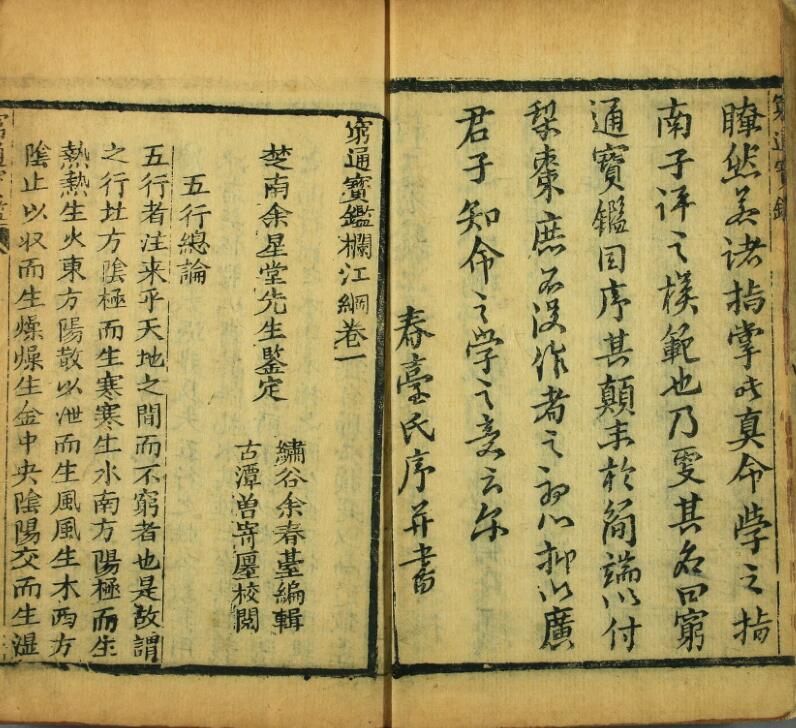 瞭然若諸指掌此真命學之指
南子評之模範也乃更其名曰窮
通寶鑑因序其顛末於簡端以付
梨棗庶不沒作者之初心抑以廣
君子知命之學之意云尔
春臺氏序并書
窮通寶鑑
窮通寶鑑欄江網卷一
楚南余星堂先生鑒定
繡谷余春臺編輯
古潭曾寄廛校閱
五行總論
五行者往来乎天地之間而不窮者也是故謂
之行北方陰極而生寒寒生水南方陽極而生
熱熱生火東方陽散以泄而生風風生木西方
陰止以収而生燥燥生金中央陰陽交而生濕
窮通寶鑑